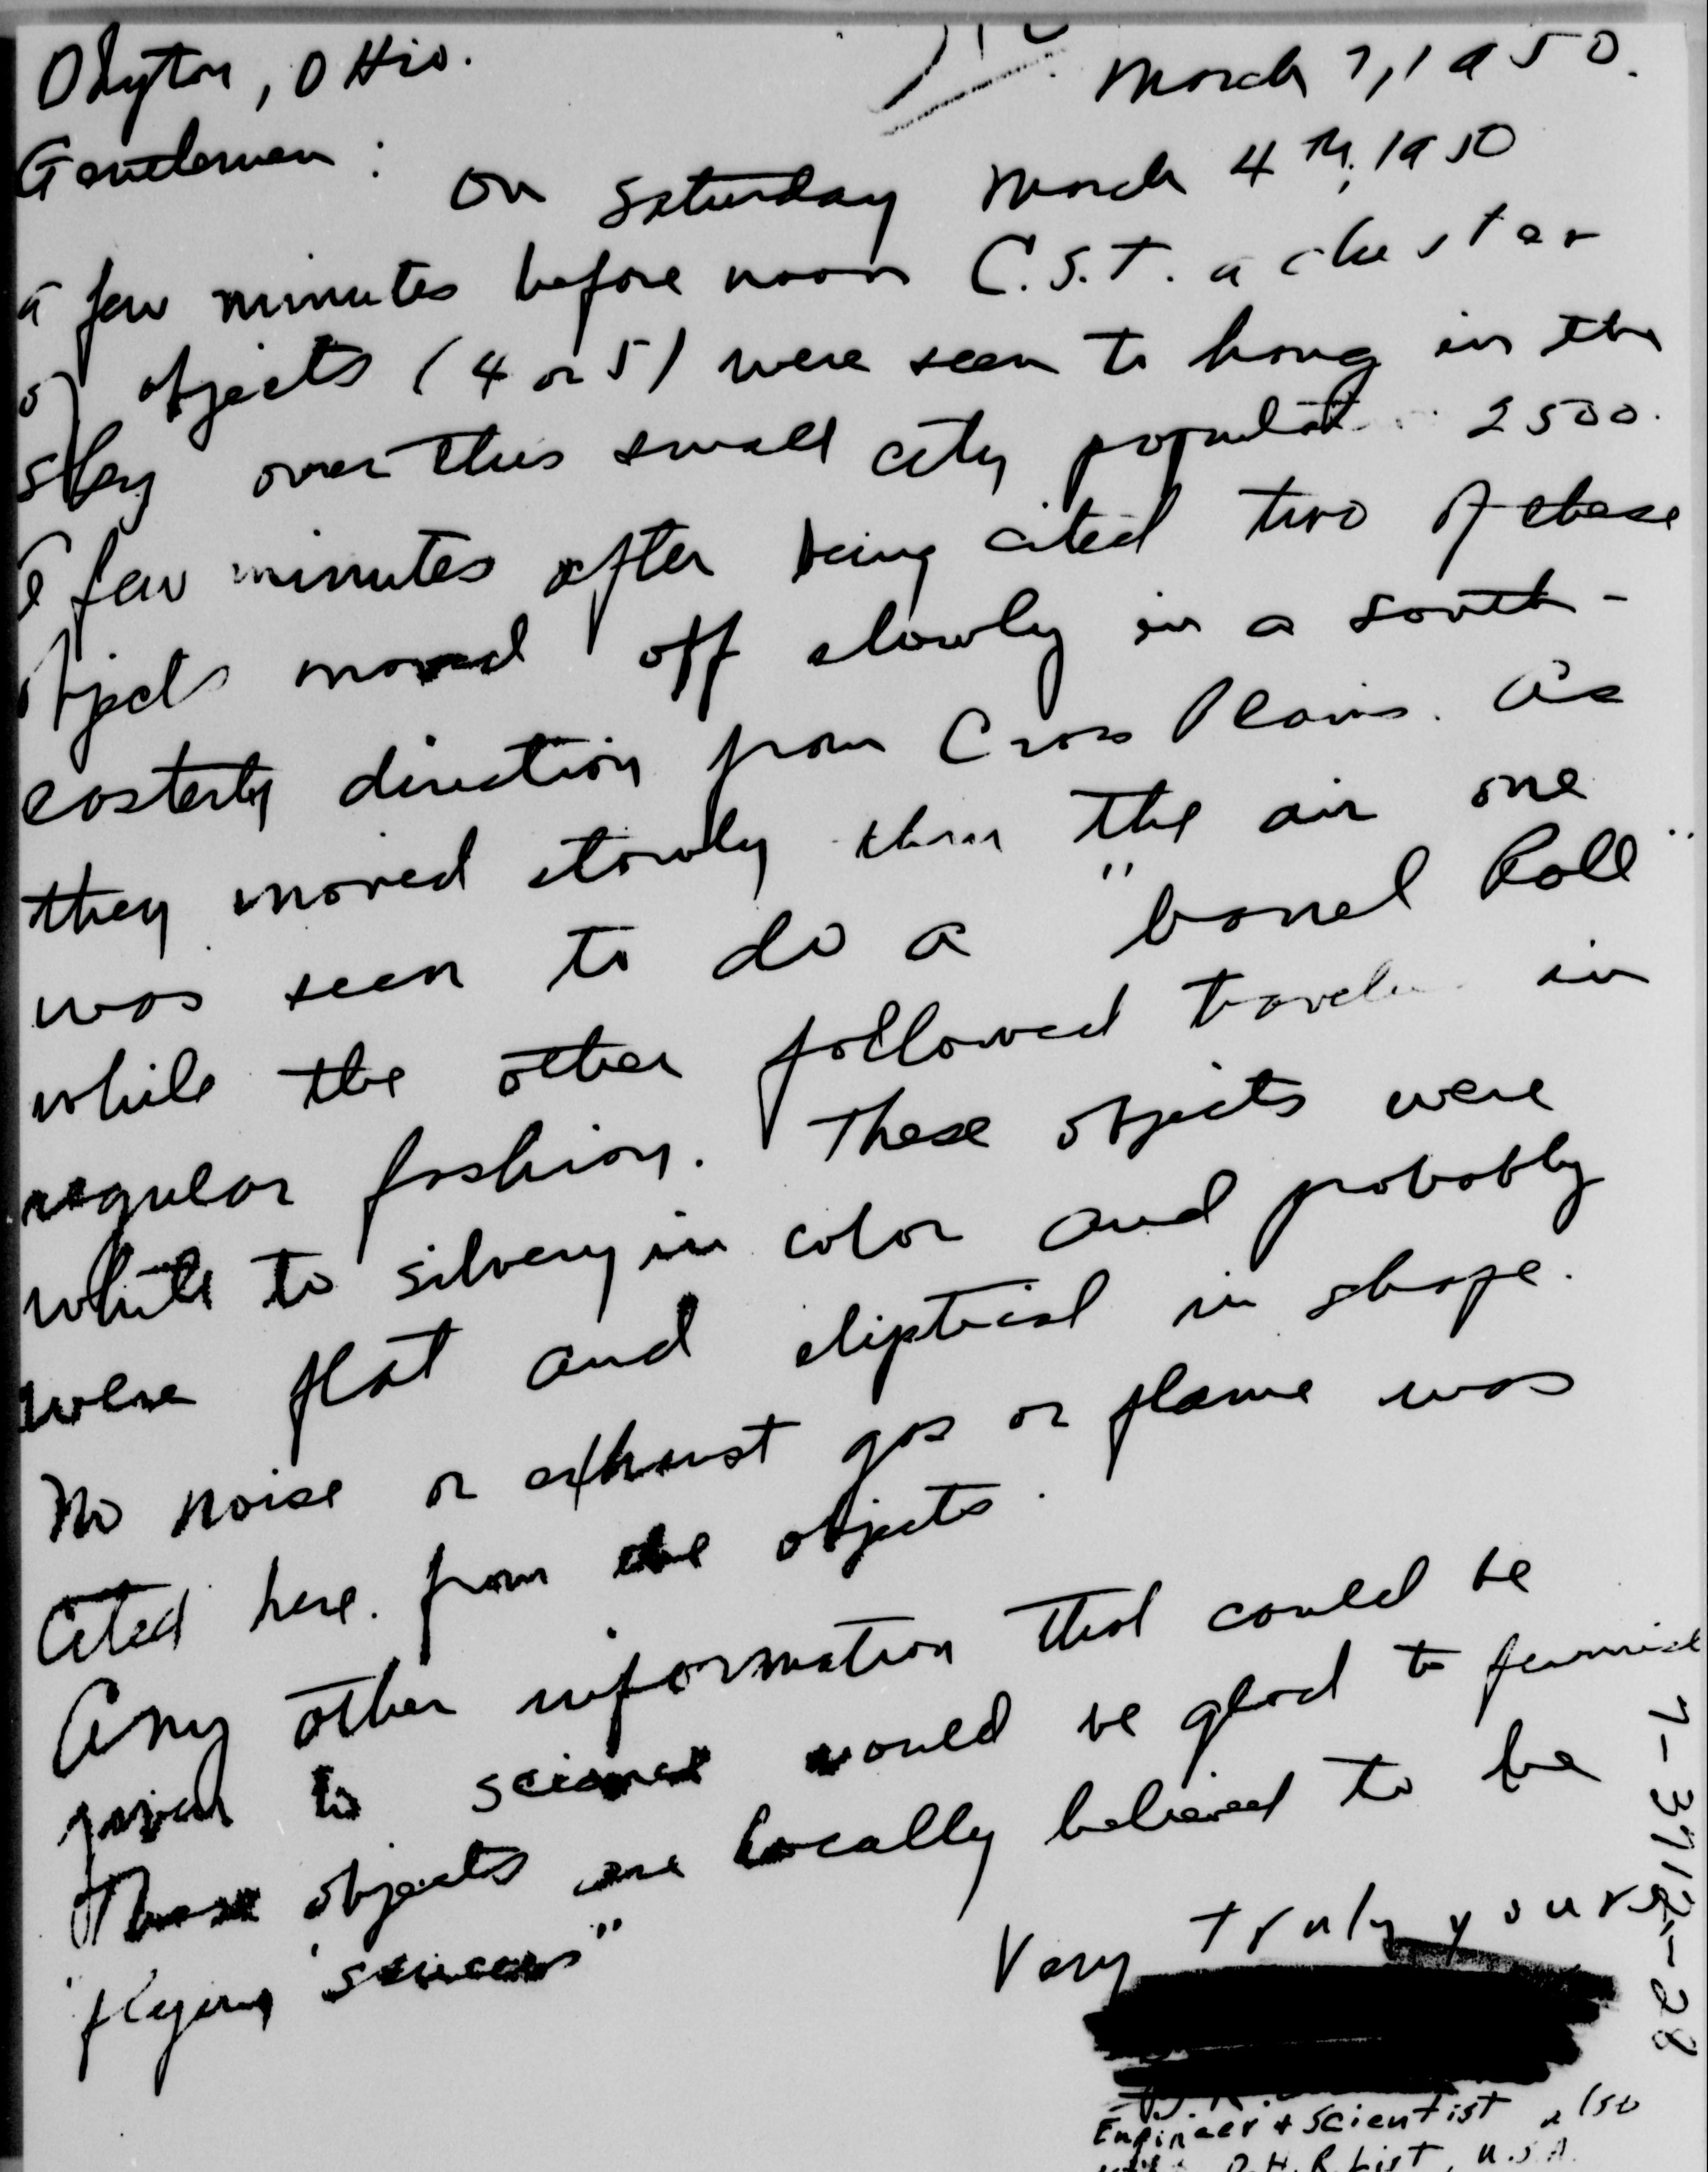 Dayton, OHio.
March 7, 1950.
Gentlemen: On Saturday March 4th, 1950
a few minutes before noon C.S.T. a cluster
of objects (4 or 5) were seen to hang in the
sky over this small city populat 2500.
a few minutes after being cited two of these
objects moved off slowly in a south-
easterly direction from Cross Plains. As
they moved slowly thru the air one
was seen to do a "barrel Roll"
while the other followed travel in
regular fashion. These objects were
white to silvery in color and probably
were flat and eliptical in shape.
No noise or exhaust gas or flame was
Cited here. from the objects.
Any other information that could be
given to science would be glad to furnish
These objects are locally believed to be
"flying saucers"
Very truly yours
Engineer + Scientist also
D.H.R. List, U.S.A.
7-3712-28